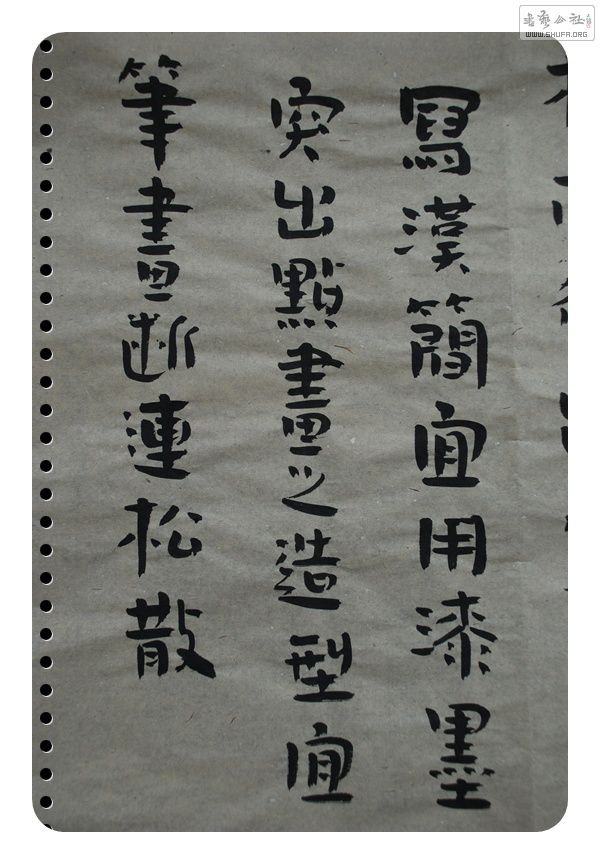 寫漢簡宜用漆墨
突出點畫之造型宜
筆畫断連松散
WWW.SHUFA.ORG